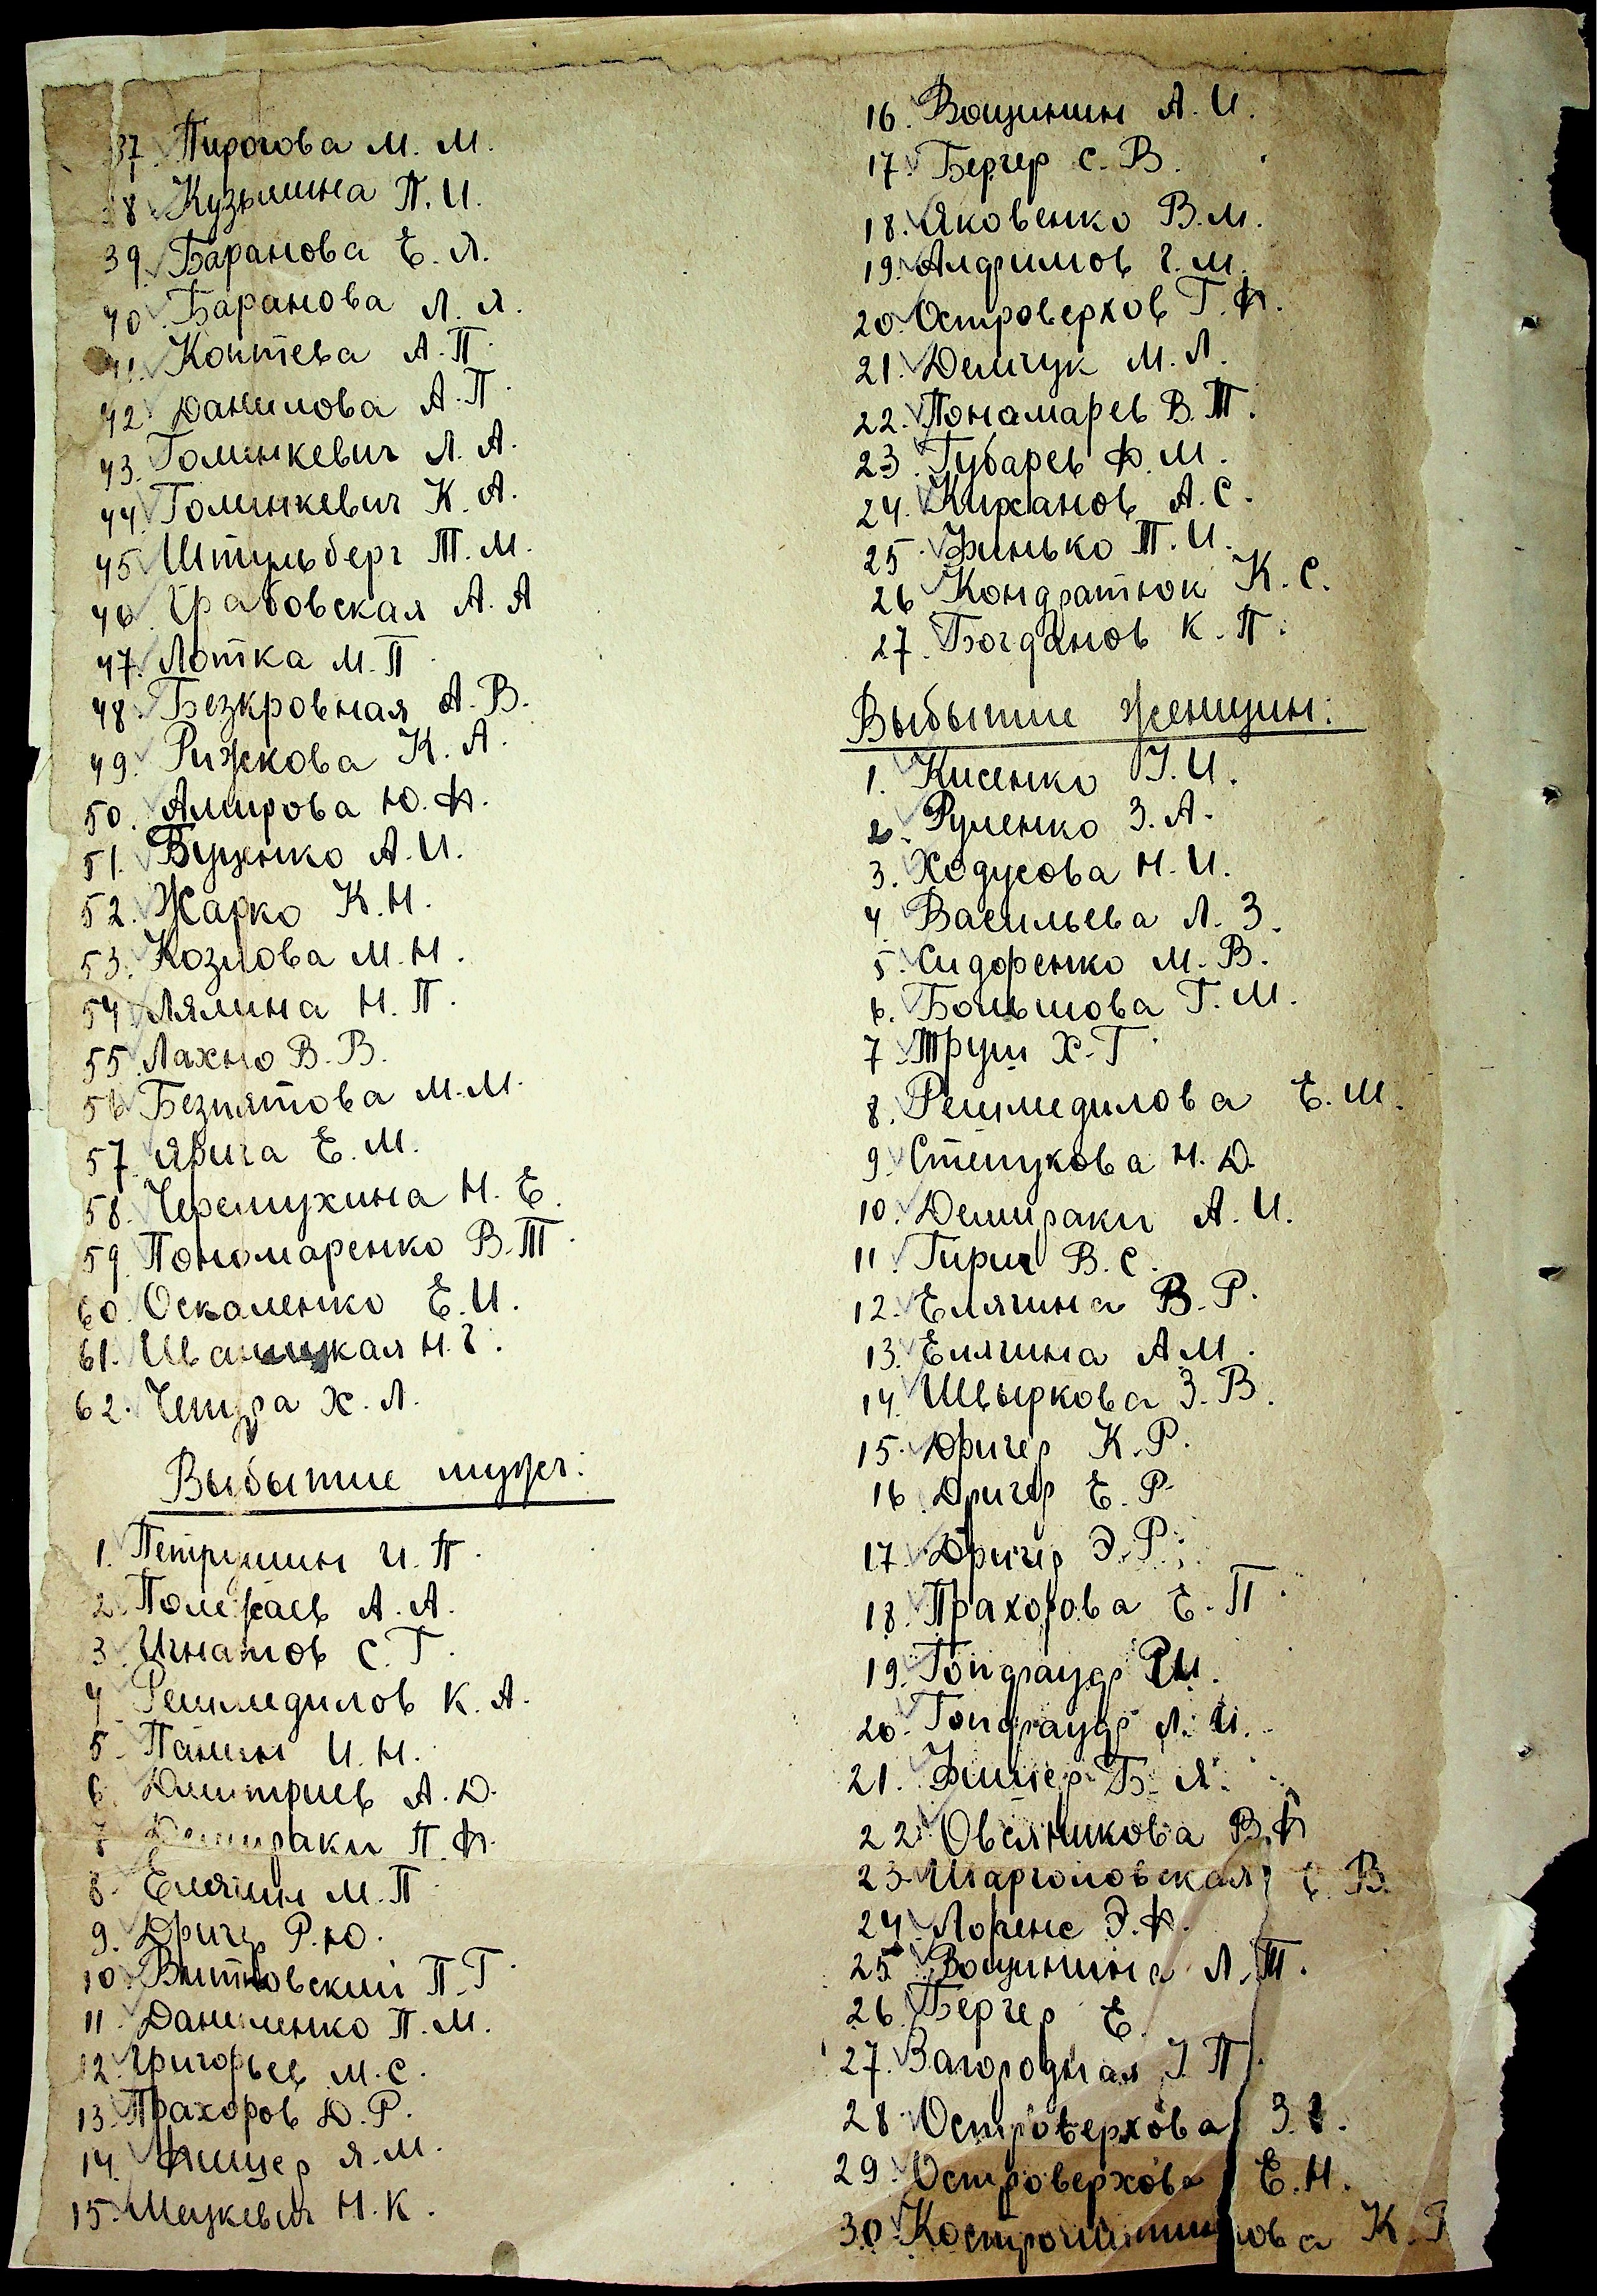 37. Пирогова М. М.
38. Кузьмина П. И.
39. Баранова Е. Л.
40. Баранова Л. Я.
41. Коптева А. П.
42. Данилова А. П.
43. Голинкевич Л. А.
44. Голинкевич К. А.
45. Штульберг Т. М.
46. Грабовская А. А
47. Лотка М. П.
48. Безкровная А. В.
49. Рижкова К. А.
50. Амирова Ю. Ф.
51. Буценко А. И.
52. Жарко К. Н.
53. Козлова М. Н.
54. Лялина Н. П.
55. Лахно В. В.
56. Безпятова М. М.
57. Ярига Е. М.
58. Черемухина Н. Е.
59. Пономаренко В. Т.
60. Оскаленко Е. И.
61. Н. Г.
62. Х. Л.
Выбытие мужч:
1. Петрушин И. П.
2. Полежаев А. А.
3. Игнатов С. Г.
4. Решмедилов К. А.
5. Панин И. Н.
6. Дмитриев А. Д.
7. Демираки П. Ф.
8. Елягин М. П.
9. Дригер Р. Ю.
10. Витковский П. Г.
11. Даниленко П. М.
12. Григорьев М. С.
13. Прахоров Д. Р.
14. Фишер Я. М.
15. Мацкевич Н. К.
16. Вощинин А. И.
17. Бергер С. В.
18. Яковенко В. М.
19. Алфимов Г. М.
20. Островерхов Г. Ф.
21. Демчук М. Л.
22. Пономарев В. Т.
23. Губарев Ф. М.
24. Кирханов А. С.
25. Финько П. И.
26 Кондратюк К. С.
27. Богданов К. П.
Выбытие женщин:
1. Кисенко У. И.
2. Руленко З. А.
3. Ходусова Н. И.
4. Васильева Л. З.
5. Сидоренко М. В.
6. Большова Г. М.
7. Труш Х. Г.
8. Решмедилова Е. Ш.
9. Стецукова Н. Д.
10. Демираки А. И.
11. Гирич В. С.
12. Елягина В. Р.
13. Елягина А М.
14. Швыркова З. В.
15. Дригер К. Р.
16. Дригер Е. Р.
17. Дригер Э. Р.
18. Прахорова Е. П.
19. Гольдраудр
20. Гольдраудр Л. И.
21. Фишер Б. Я.
22. Овсяникова В. Ф
23. Шарголовская Е. В.
24. Лоренс Э. Ф.
25. Вощинина Л. Т.
26. Бергер Е.
27. Загородная У. П.
28. Островерхова З. Г.
29. Островерхова Е. Н.
30. К. Г